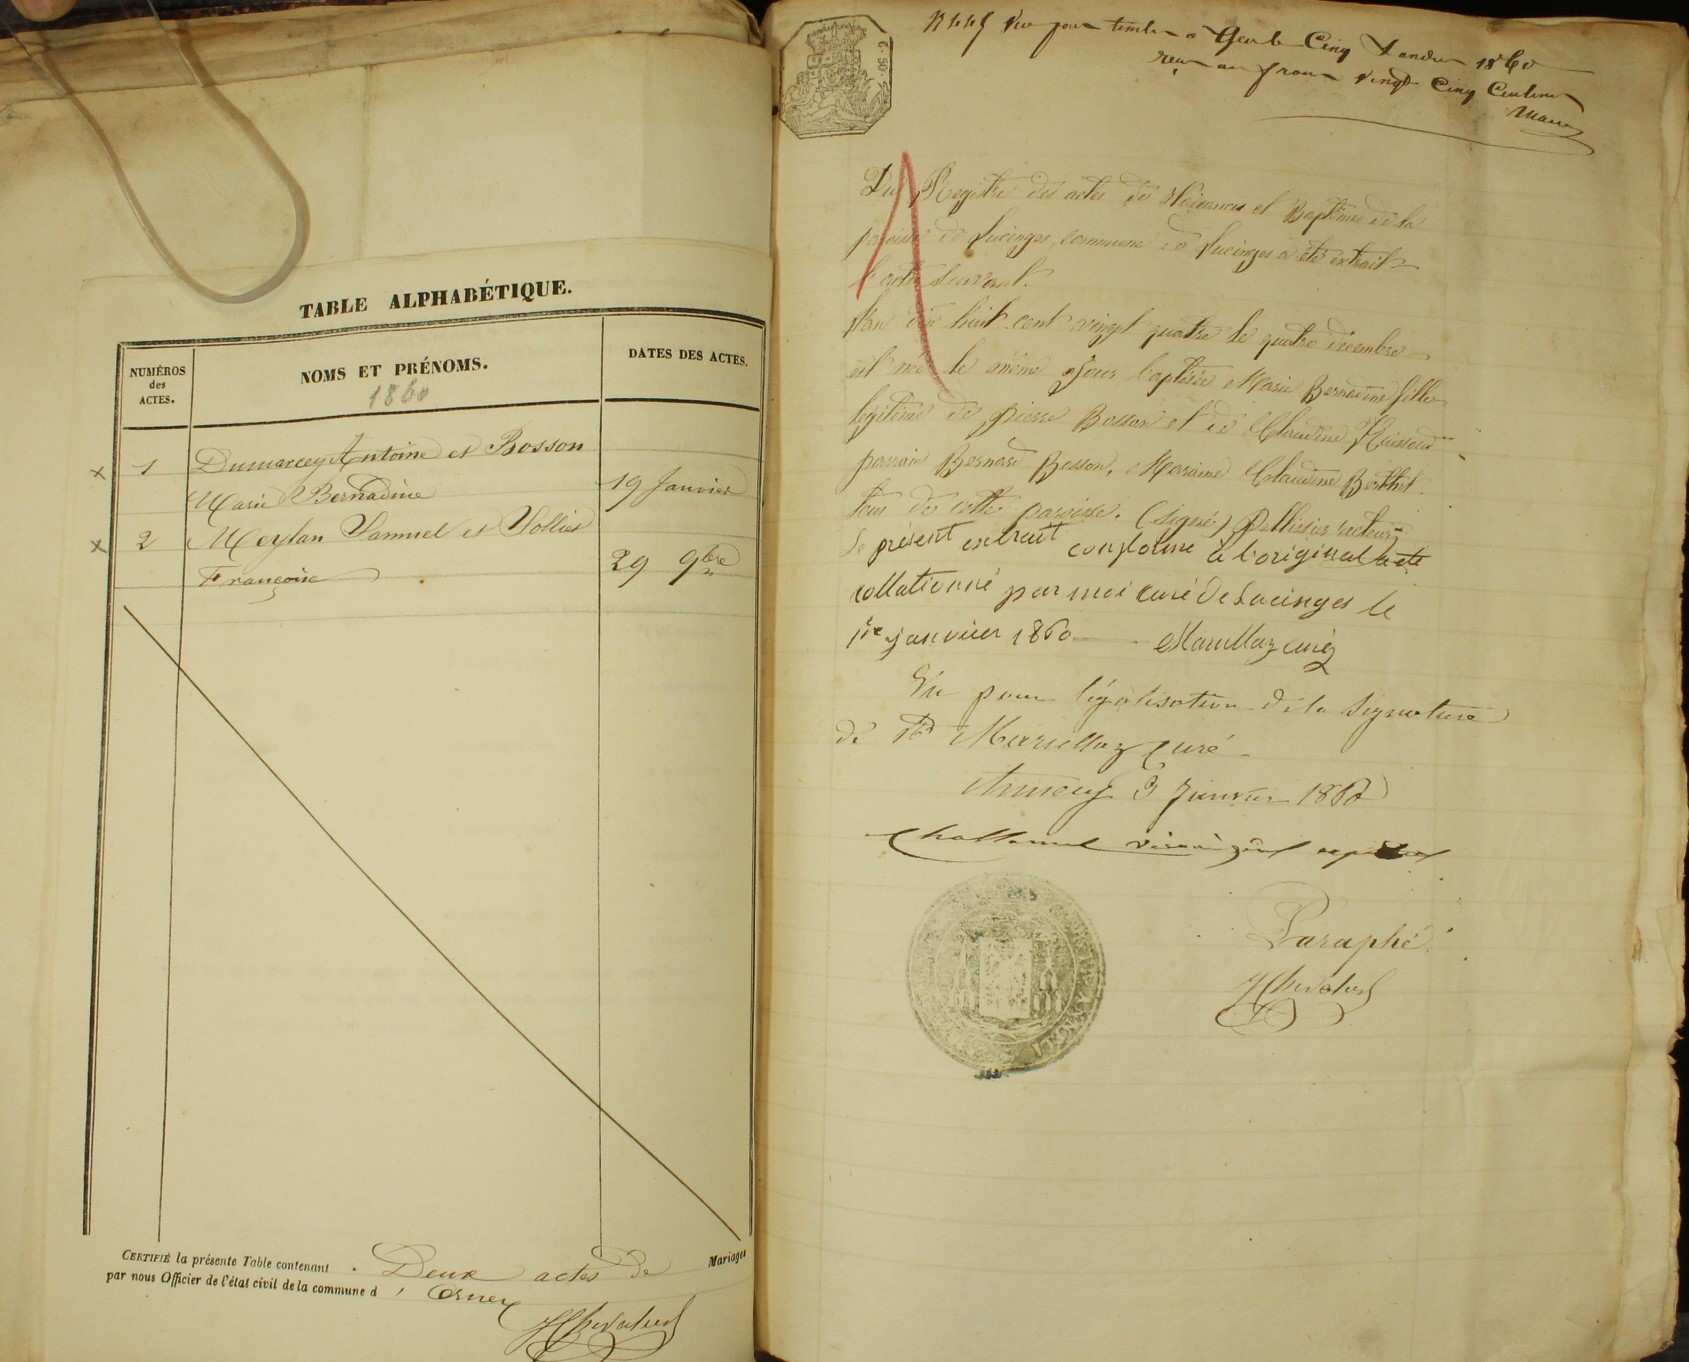 TABLE ALPHABÉTIQUE.
NUMÉROS
des
ACTES.
NOMS ET PRÉNOMS.
1860
DATES DES ACTES.
1 Dumarcey Antoine et Bosson
Marie Bernadine 19 Janvier
2 Meylan Samuel et Sollier
Françoise 29 9bre
CERTIFIÉ la présente Table contenant Deux actes de Mariages
par nous Officier de l'état civil de la commune d'Ornex
2.50
Vu pour timbre à Gex le Cinq Janvier 1860
reçu un franc vingt Cinq Centimes
Du Registre des actes de Naissances et Baptêmes de la
paroisse de Lucinges, commune de Lucinges a été extrait
l'acte suivant.
L'an dix huit cent vingt quatre le quatre décembre
est née le même jour baptisée Marie Bernadine fille
légitime de Pierre Bosson et de Claudine
parrain Bernard Bosson, Marraine Claudine Berthet.
tous de cette paroisse. (Signé) Pellissier recteur
Le présent extrait conforme à l'original acte
collationné par moi curé de Lucinges le
1er janvier 1860 Marullaz curé
Vu pour légalisation de la signature
de Rd Marullaz Curé
Annecy 3 Janvier 1860
Paraphé